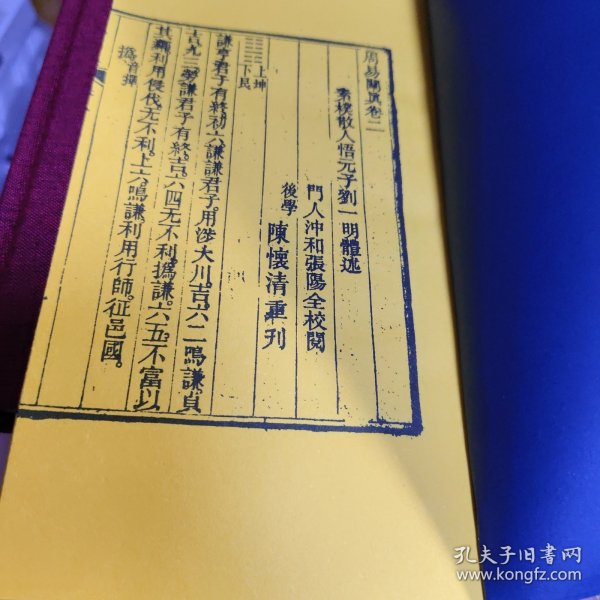 周易闡真卷二
素樸散人悟元子劉一明體述
門人沖和張陽全校閱
後學陳懷清重刊
上坤
下艮
謙亨君子有終初六謙謙君子用涉大川吉六二鳴謙貞
吉九三勞謙君子有終吉六四无不利撝謙六五不富以
其鄰利用侵伐无不利上六鳴謙利用行師征邑國
撝音揮
孔夫子旧书网
www.kongfz.com